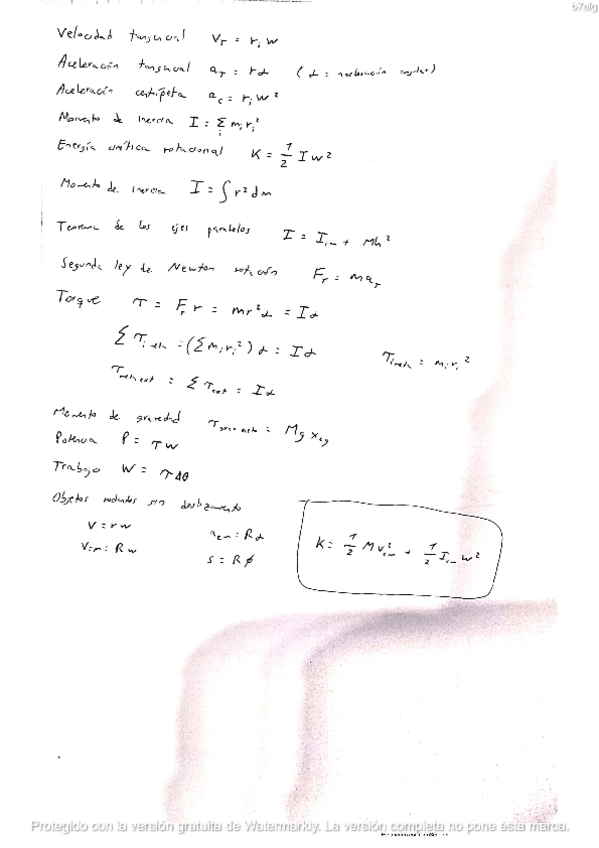 b7alg
Velocidad tangencial V_T = r_i w
Aceleración tangencial a_T = r α (α = aceleración angular)
Aceleración centípeta a_c = r_i w²
Momento de inercia I = Σ_i m_i r_i²
Energía cinética rotacional K = 1/2 I w²
Momento de inercia I = ∫ r² dm
Teorema de los ejes paralelos I = I_cm + Mh²
Segunda ley de Newton rotación F_r = m a_r
Torque τ = F_r r = m r² α = I α
Σ τ_i neta = (Σ m_i r_i²) α = I α τ_i neta = m_i r_i²
τ_net ext = Σ τ_ext = I α
Momento de gravedad = M g x_cg
Potencia P = τ w
Trabajo W = τ Δθ
Objetos rodantes sin deslizamiento
V = r w a_cm = R α
V_cm = R w s = R ϕ
K = 1/2 M v_cm² + 1/2 I_cm w²
Protegido con la versión gratuita de Watermarkly. La versión completa no pone esta marca.